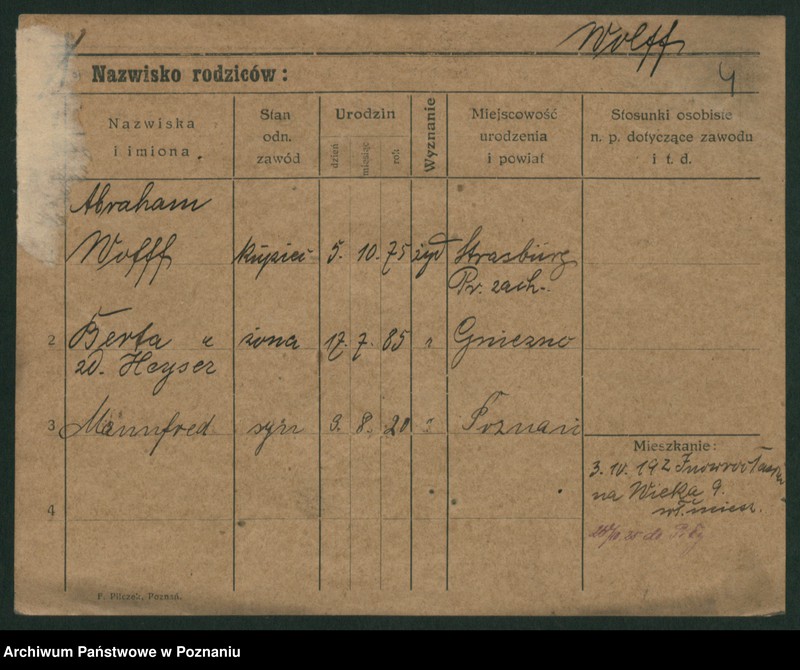 Wolff
4
Nazwisko rodziców:
Nazwiska i imiona
Stan odn. zawód
Urodzin
dzień
miesiąc
rok
Wyznanie
Miejscowość urodzenia i powiat
Stosunki osobiste n. p. dotyczące zawodu i t. d.
Abraham
Wolff kupiec 5. 10. 75 żyd Strasburg
Pr. zach.
2 Berta " żona 17. 7. 85 " Gniezno
zd. Heyser
3 Mannfred syn 9. 8. 20 " Poznań
4
Mieszkanie:
3. 10. 192
na Wieka 9.
wł. miesz.
F. Pilczek, Poznań.
Archiwum Państwowe w Poznaniu